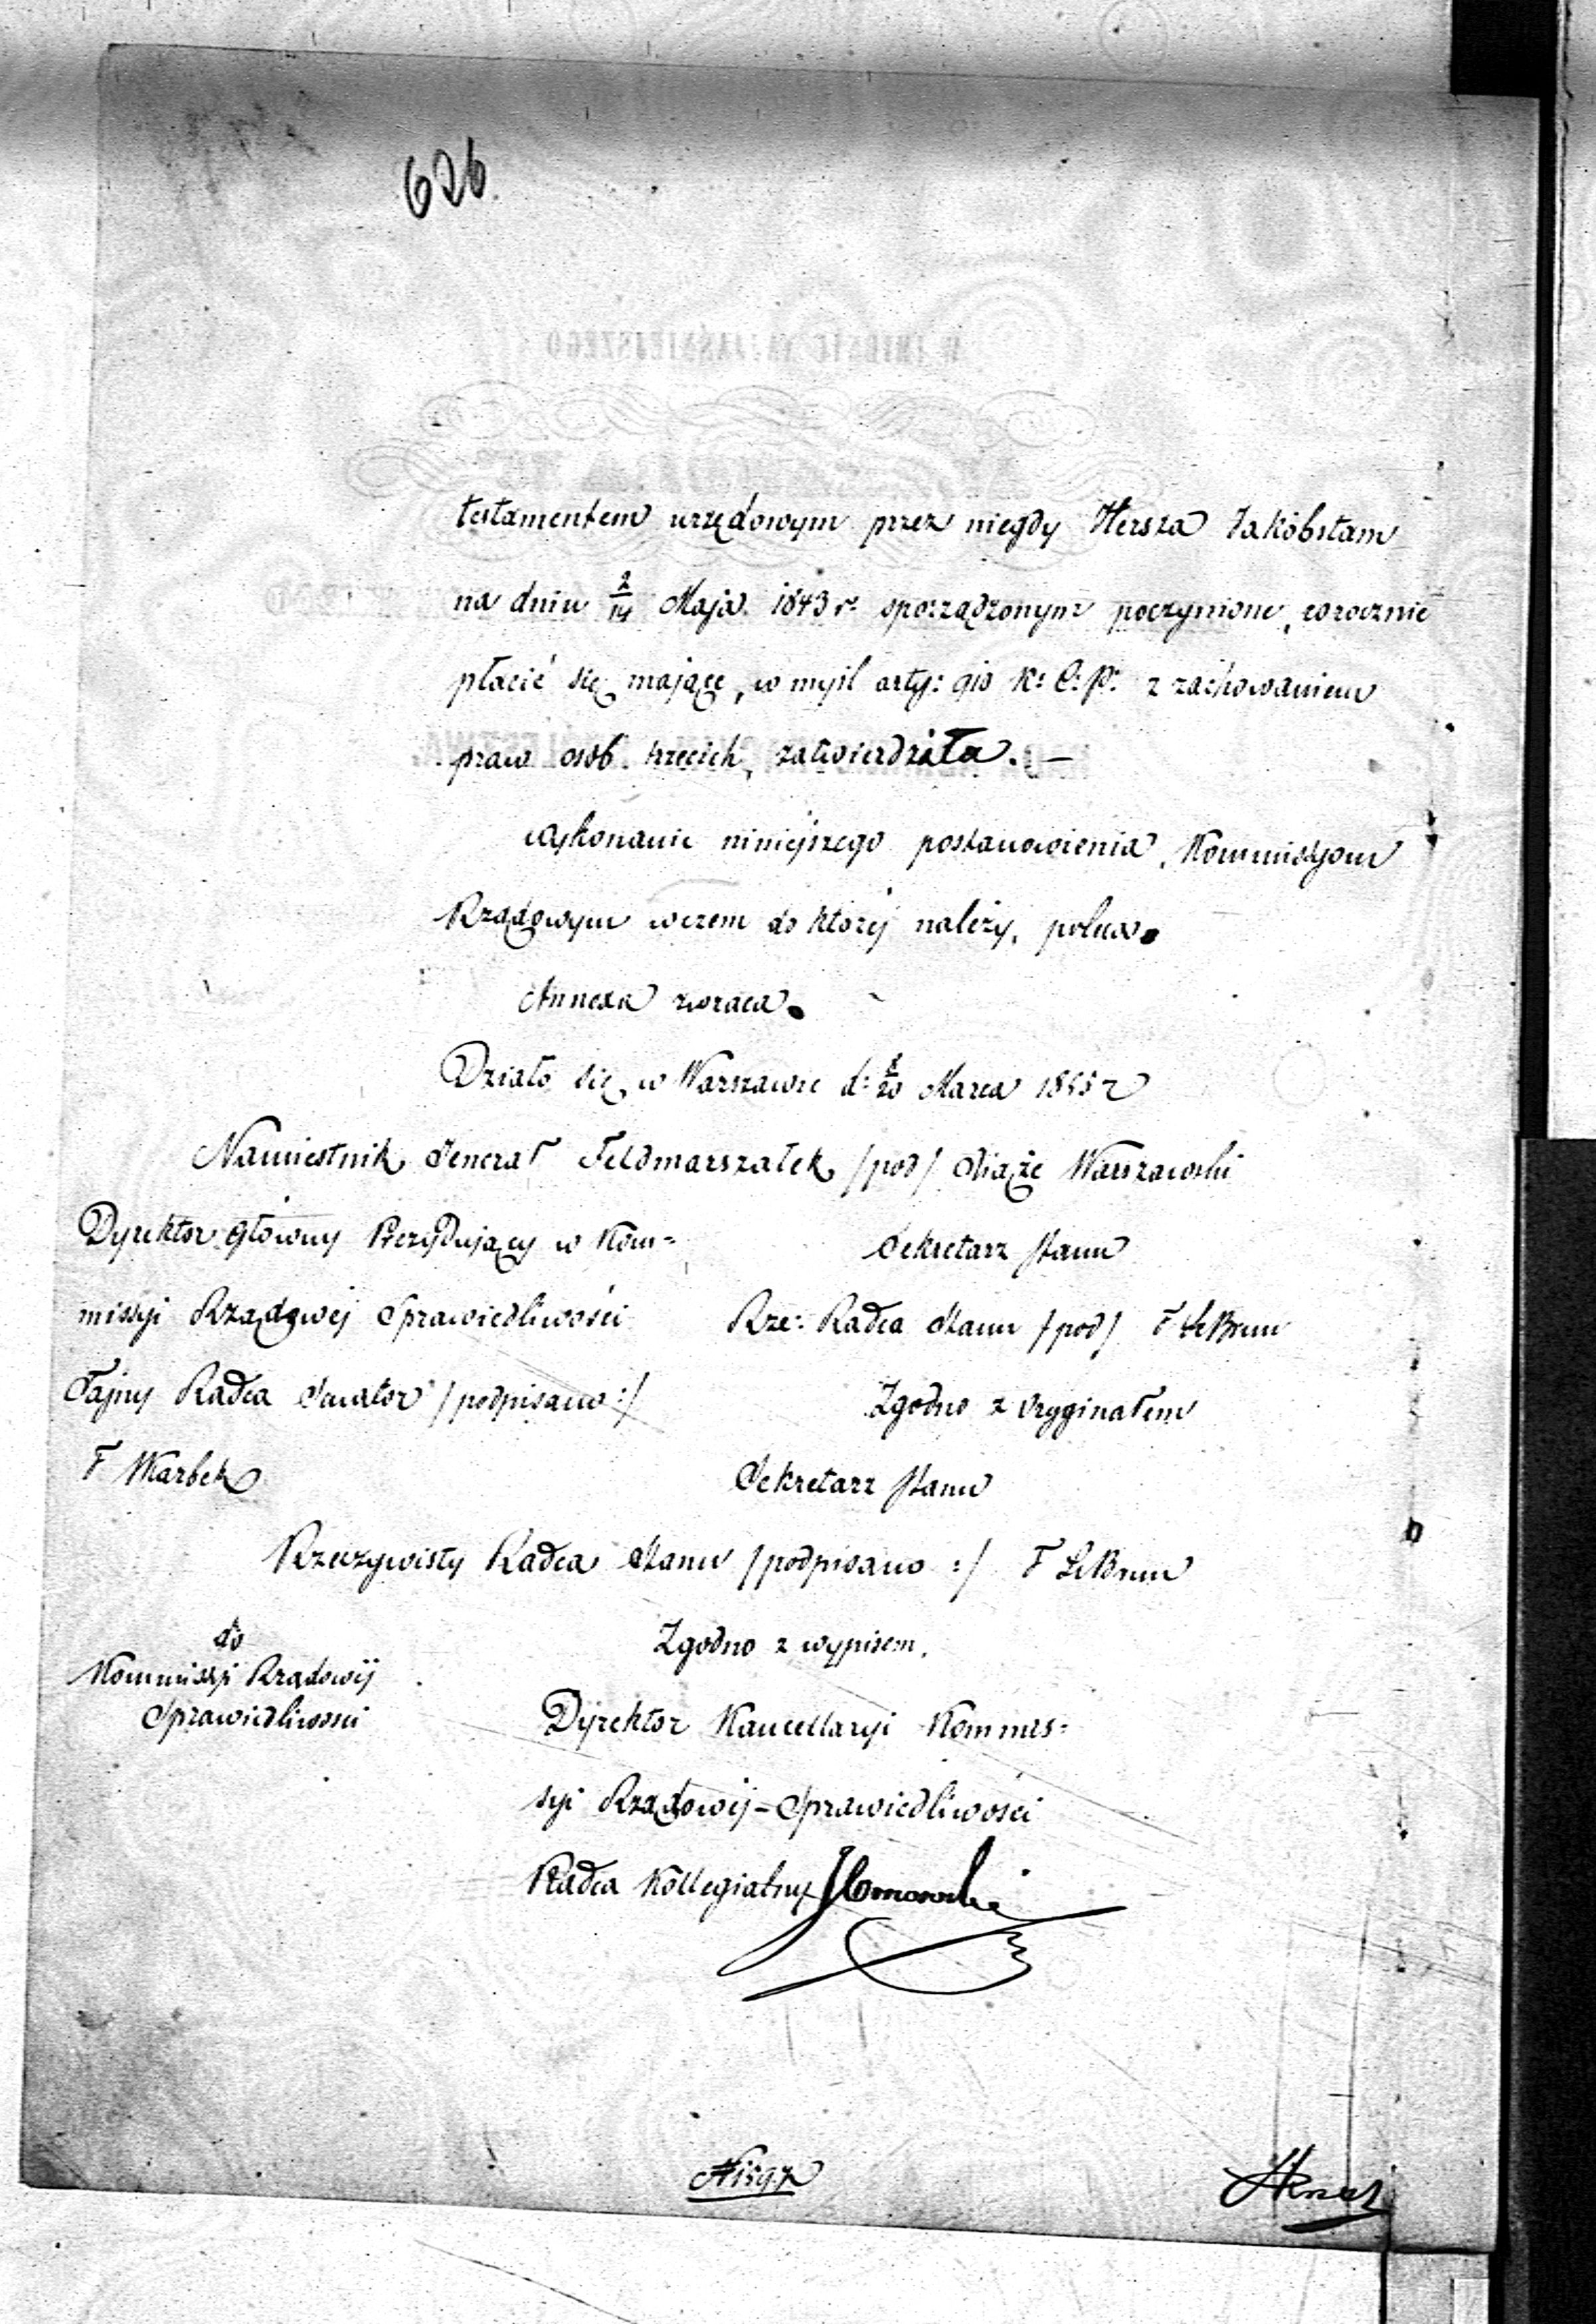 626.
testamentem urzędowym przez niegdy Hersza Jakóbstam
na dniu 2/14 Maja 1843 r. sporządzonym poczynione, corocznie
płacić się mające, w myśl arty: 910 K: C: P: z zachowaniem
praw osób trzecich, zatwierdziła. —
Wykonanie niniejszego postanowienia, Kommissyom
Rządowym w czem do której należy, poleca.
Annexa zwraca.
Działo się w Warszawie d: 8/20 Marca 1855 r
Namiestnik Generał Feldmarszałek /pod/ Xiąże Warszawski
Dyrektor Główny Prezydujący w Kom=
missyi Rządowéj Sprawiedliwości
Tajny Radca Senator /podpisano:/
F Skarbek
Sekretarz Stanu
Rze: Radca Stanu /pod/ F LeBrun
Zgodno z Oryginałem
Sekretarz Stanu
Rzeczywisty Radca Stanu /podpisano :/ F LeBrun
do
Kommissyi Rządowéj
Sprawiedliwości
Zgodno z wypisem.
Dyrektor Kancellaryi Kommis=
syi Rządowéj - Sprawiedliwości
Radca Kollegialny